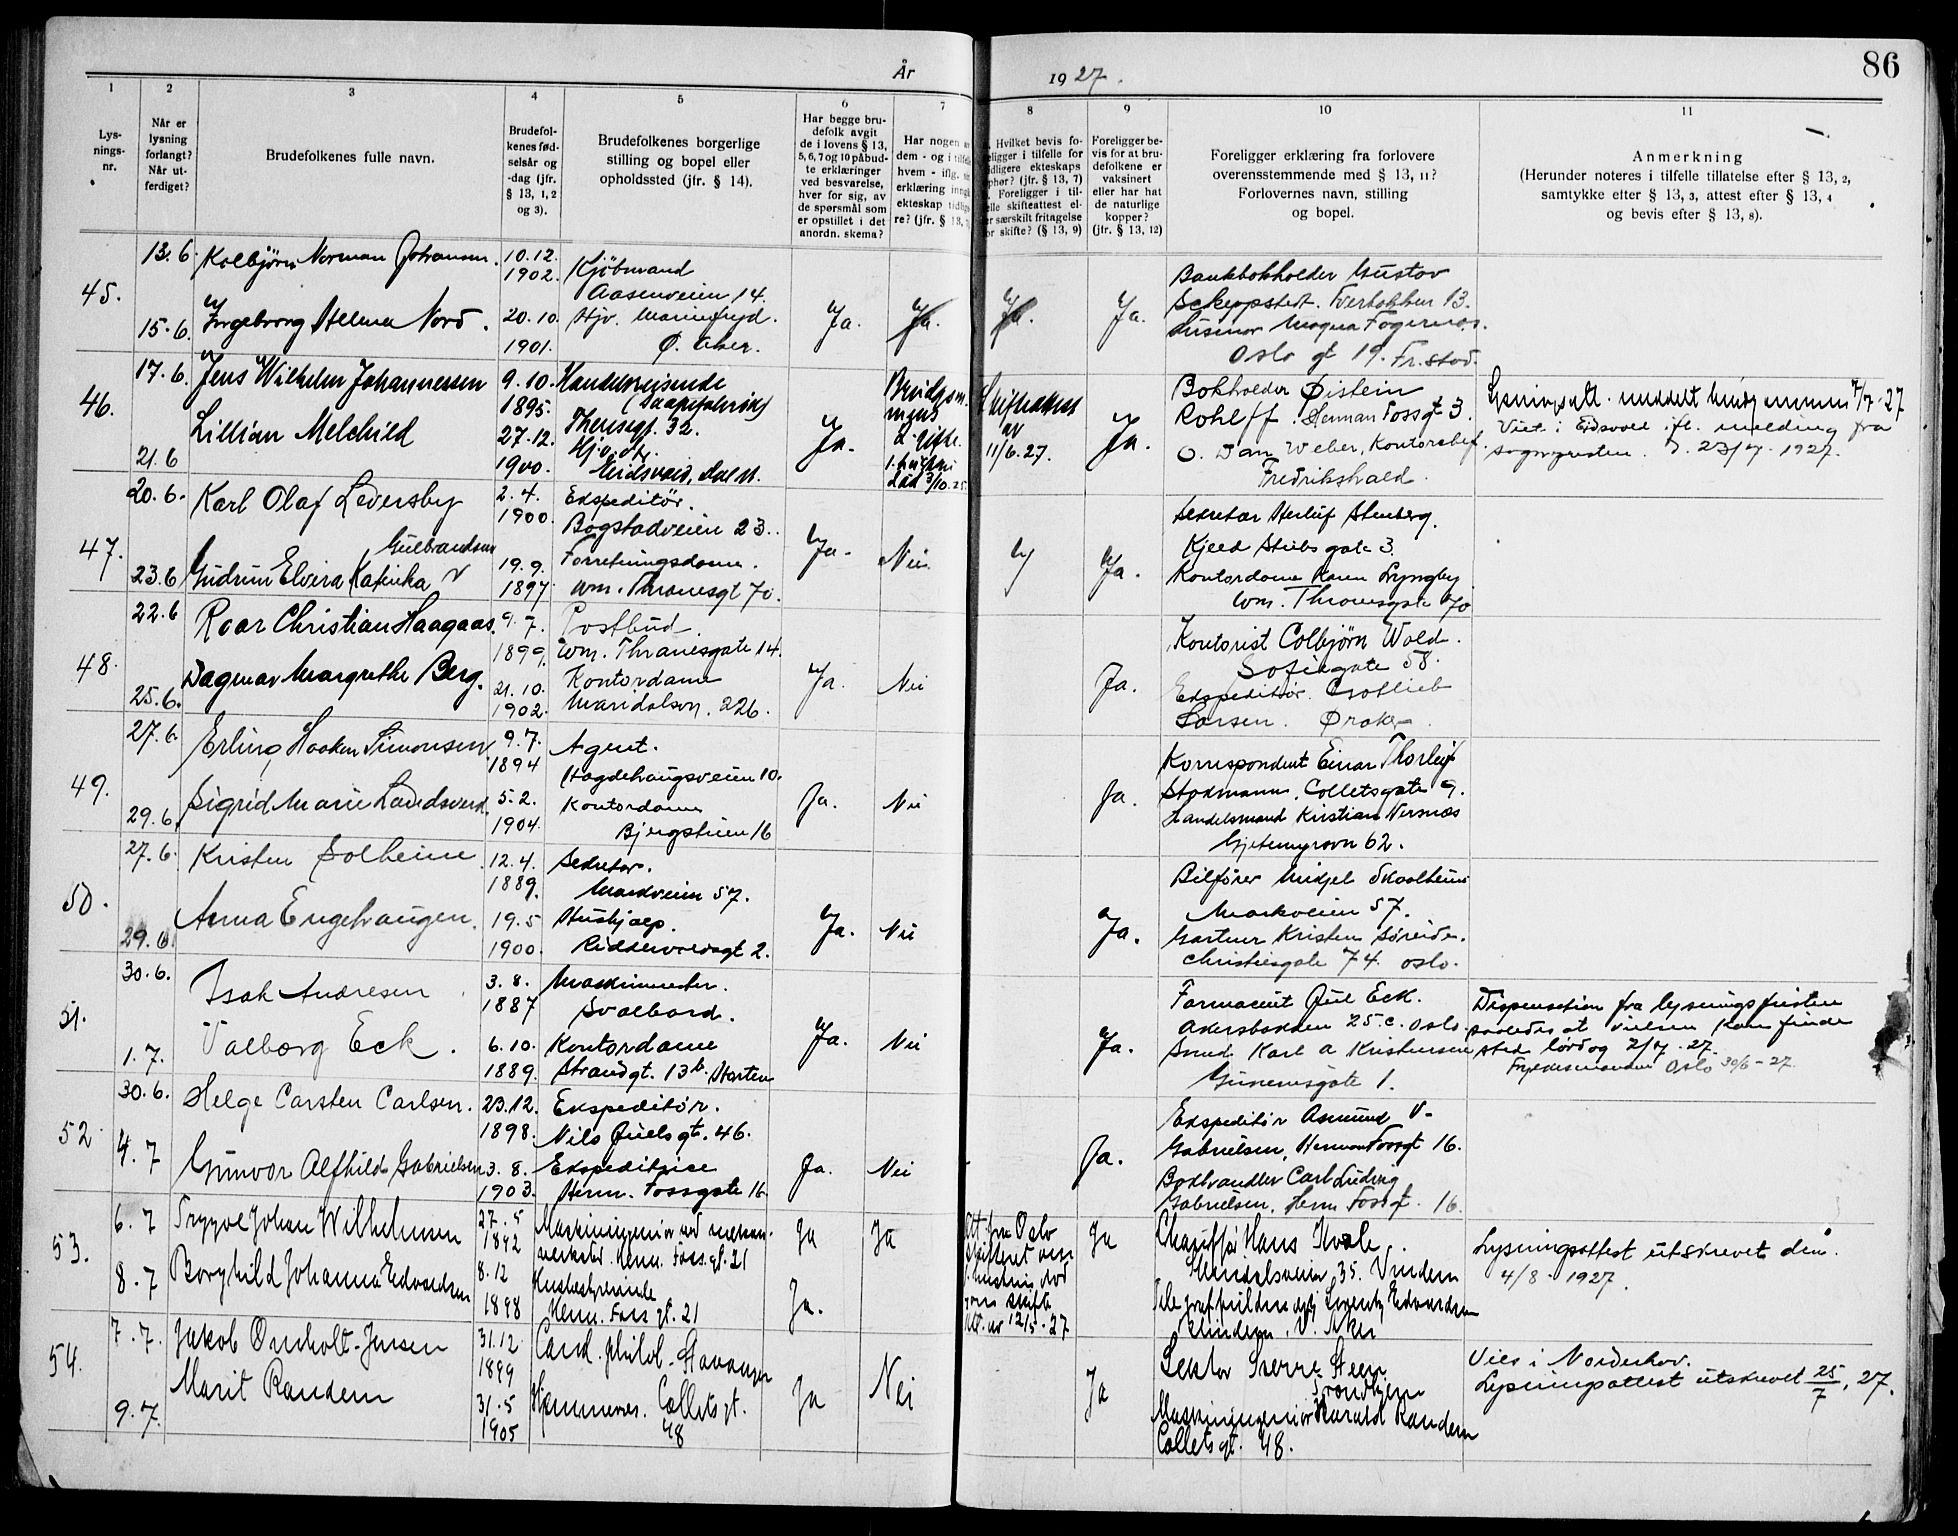 År 1927.
86
1
2
3
4
5
6
7
8
9
10
11
Lys-
nings-
nr.
Når er
lysning
forlangt?
Når ut-
ferdiget?
Brudefolkenes fulle navn.
Brudefol-
kenes fød-
selsår og
-dag (jfr.
§ 13, 1, 2
og 3).
Brudefolkenes borgerlige
stilling og bopel eller
opholdssted (jfr. § 14).
Har begge bru-
defolk avgit
de i lovens § 13,
5, 6, 7 og 10 påbud-
te erklæringer
ved besvarelse,
hver for sig, av
de spørsmål som
er opstillet i det
anordn. skema?
Har nogen
dem - og i
hvem - iflg.
erklæring
ekteskap
re? (jfr. § 13,
Hvilket bevis fo-
religger i tilfelle for
tidligere ekteskaps
ophør? (jfr. § 13, 7)
Foreligger i til-
felle skifteattest el-
ler særskilt fritagelse
for skifte? (§ 13, 9)
Foreligger be-
vis for at bru-
defolkene er
vaksinert
eller har hat
de naturlige
kopper?
(jfr. § 13, 12)
Foreligger erklæring fra forlovere
overensstemmende med § 13, 11?
Forlovernes navn, stilling
og bopel.
Anmerkning
(Herunder noteres i tilfelle tillatelse efter § 13, 2,
samtykke efter § 13, 3, attest efter § 13, 4
og bevis efter § 13, 8).
45.
13.6. Kolbjörn Norman Johansen. 10.12.
1902. Kjöbmand
Aasenveien 14.
15.6. Ingeborg Helena Nord. 20.10.
1901.
Hjv. Marienfryd.
Ø. Aker.
Ja. Ja. Ja. Ja.
Bankbokholder Gustav
13.
Oslo gt 19. Fr.stad.
46.
17.6. Jens Wilhelm Johannessen 9.10.
1895. Handelsreisende
Theresegt. 32.
Lillian Melchild 27.12.
1900.
21.6
Ja.
Skifteattest
av
11/6.27.
Ja.
Bokholder Øistein
Rohlff. Herman Fossgt 3.
O. Dan Weber, Kontorchef.
Fredrikshald.
7/7-27
Viet i Eidsvold ifl. melding fra
sognepresten. 23/7.1927.
47.
20.6. Karl Olaf Ledersby 2.4.
1900. Ekspeditör.
Bogstadveien 23.
Gulbrandsen
23.6 Gudrun Elvira Katinka 19.9.
1897 Forretningsdame.
Wm. Thranesgt 70.
Ja. Nei Ja.
Sekretær Herluf Stenberg.
Kjeld Stubsgate 3.
Kontordame Karen Lyngby
Wm. Thranesgate 70
48.
22.6 Roar Christian Haagaas. 9.7.
1899. Postbud.
Wm. Thranesgate 14.
25.6. Dagmar Margrethe Berg. 21.10.
1902. Kontordame
Maridalsvn. 226.
Ja. Nei Ja.
Kontorist Colbjørn Wold.
Sofiegate 58.
Ekspeditör Gottlieb
Larsen. Øraker.
49.
27.6. Erling Haakon Simonsen 9.7.
1894 Agent.
Hagdehaugsveien 10.
29.6. Sigrid Marie Landsverk. 5.2.
1904. Kontordame
Bjergstien 16
Ja. Nei Ja.
Korrespondent Einar Thorleif
Stadmann, Colletsgate 9.
Handelsmand Kristian Nersnæs
Gjetemyrsvn 62.
50.
27.6. Kristen Solheim 12.4.
1889. Sekretær.
Markveien 57.
29.6. Anna Engehaugen. 19.5
1900. Hushjælp.
Riddervoldsgt 2.
Ja. Nei Ja.
Bilfører Mikjel Skaalheim
Markveien 57.
Gartner Kristen Søreide.
Christiesgate 74. Oslo.
51.
30.6. Isak Andresen 3.8.
1887 Maskinmester.
Svalbard.
1.7. Valborg Eck. 6.10.
1889. Kontordame
Strandgt. 13b. Horten
Ja. Nei Ja.
Farmaceut Juul Eck.
Akersbakken 25.c. Oslo.
Smed Karl A Kristensen
1.
Dispensation fra lysningsfristen
saaledes at vielsen kan finde
sted lördag 2/7.27.
Fylkesmanden Oslo 30/6-27.
52
30.6. Helge Carsten Carlsen. 23.12.
1898. Ekspeditör.
Nils Juels gt. 46.
4.7 Gunvor Alfhild Gabrielsen 3.8.
1903. Ekspeditrice
Herm. Fossgate 16.
Ja. Nei Ja.
Ekspeditör Asmund V.
Gabrielsen, Herman Fossgt 16.
Bokhandler Carl Ludvig
Gabrielsen, Herm Fossgt. 16.
53.
6.7 Trygve Johan Wilhelmsen 27.5
1892 Maskiningeniør ved mekan.
verksted. Herm. Foss.gt. 21
8.7 Borghild Johanna Edvardsen 8.12
1898 Husbestyrerinde
Herm. Foss gt. 21
Ja Ja
Ja.
Att. fra Oslo
skifteret om
hustrus död
12/5-27
Ja
Chauffør Hans Kvale.
35. Vinderen
Edvardsen
Vinderen. V. Aker
Lysningsattest utskrevet den
4/8 1927.
54.
7.7. Jakob Onsholt-Jensen 31.12
1899 Cand. philol. Stavanger
9.7. Marit Randem 31.5
1905 Hjemmev. Colletsgt.
48
Ja Nei Ja
Lektor Sverre Steen
Trondhjem
Maskiningeniør Harald Randem
Collets gt. 48.
Vies i Norderhov.
Lysningsattest utskrevet 25/7, 27.